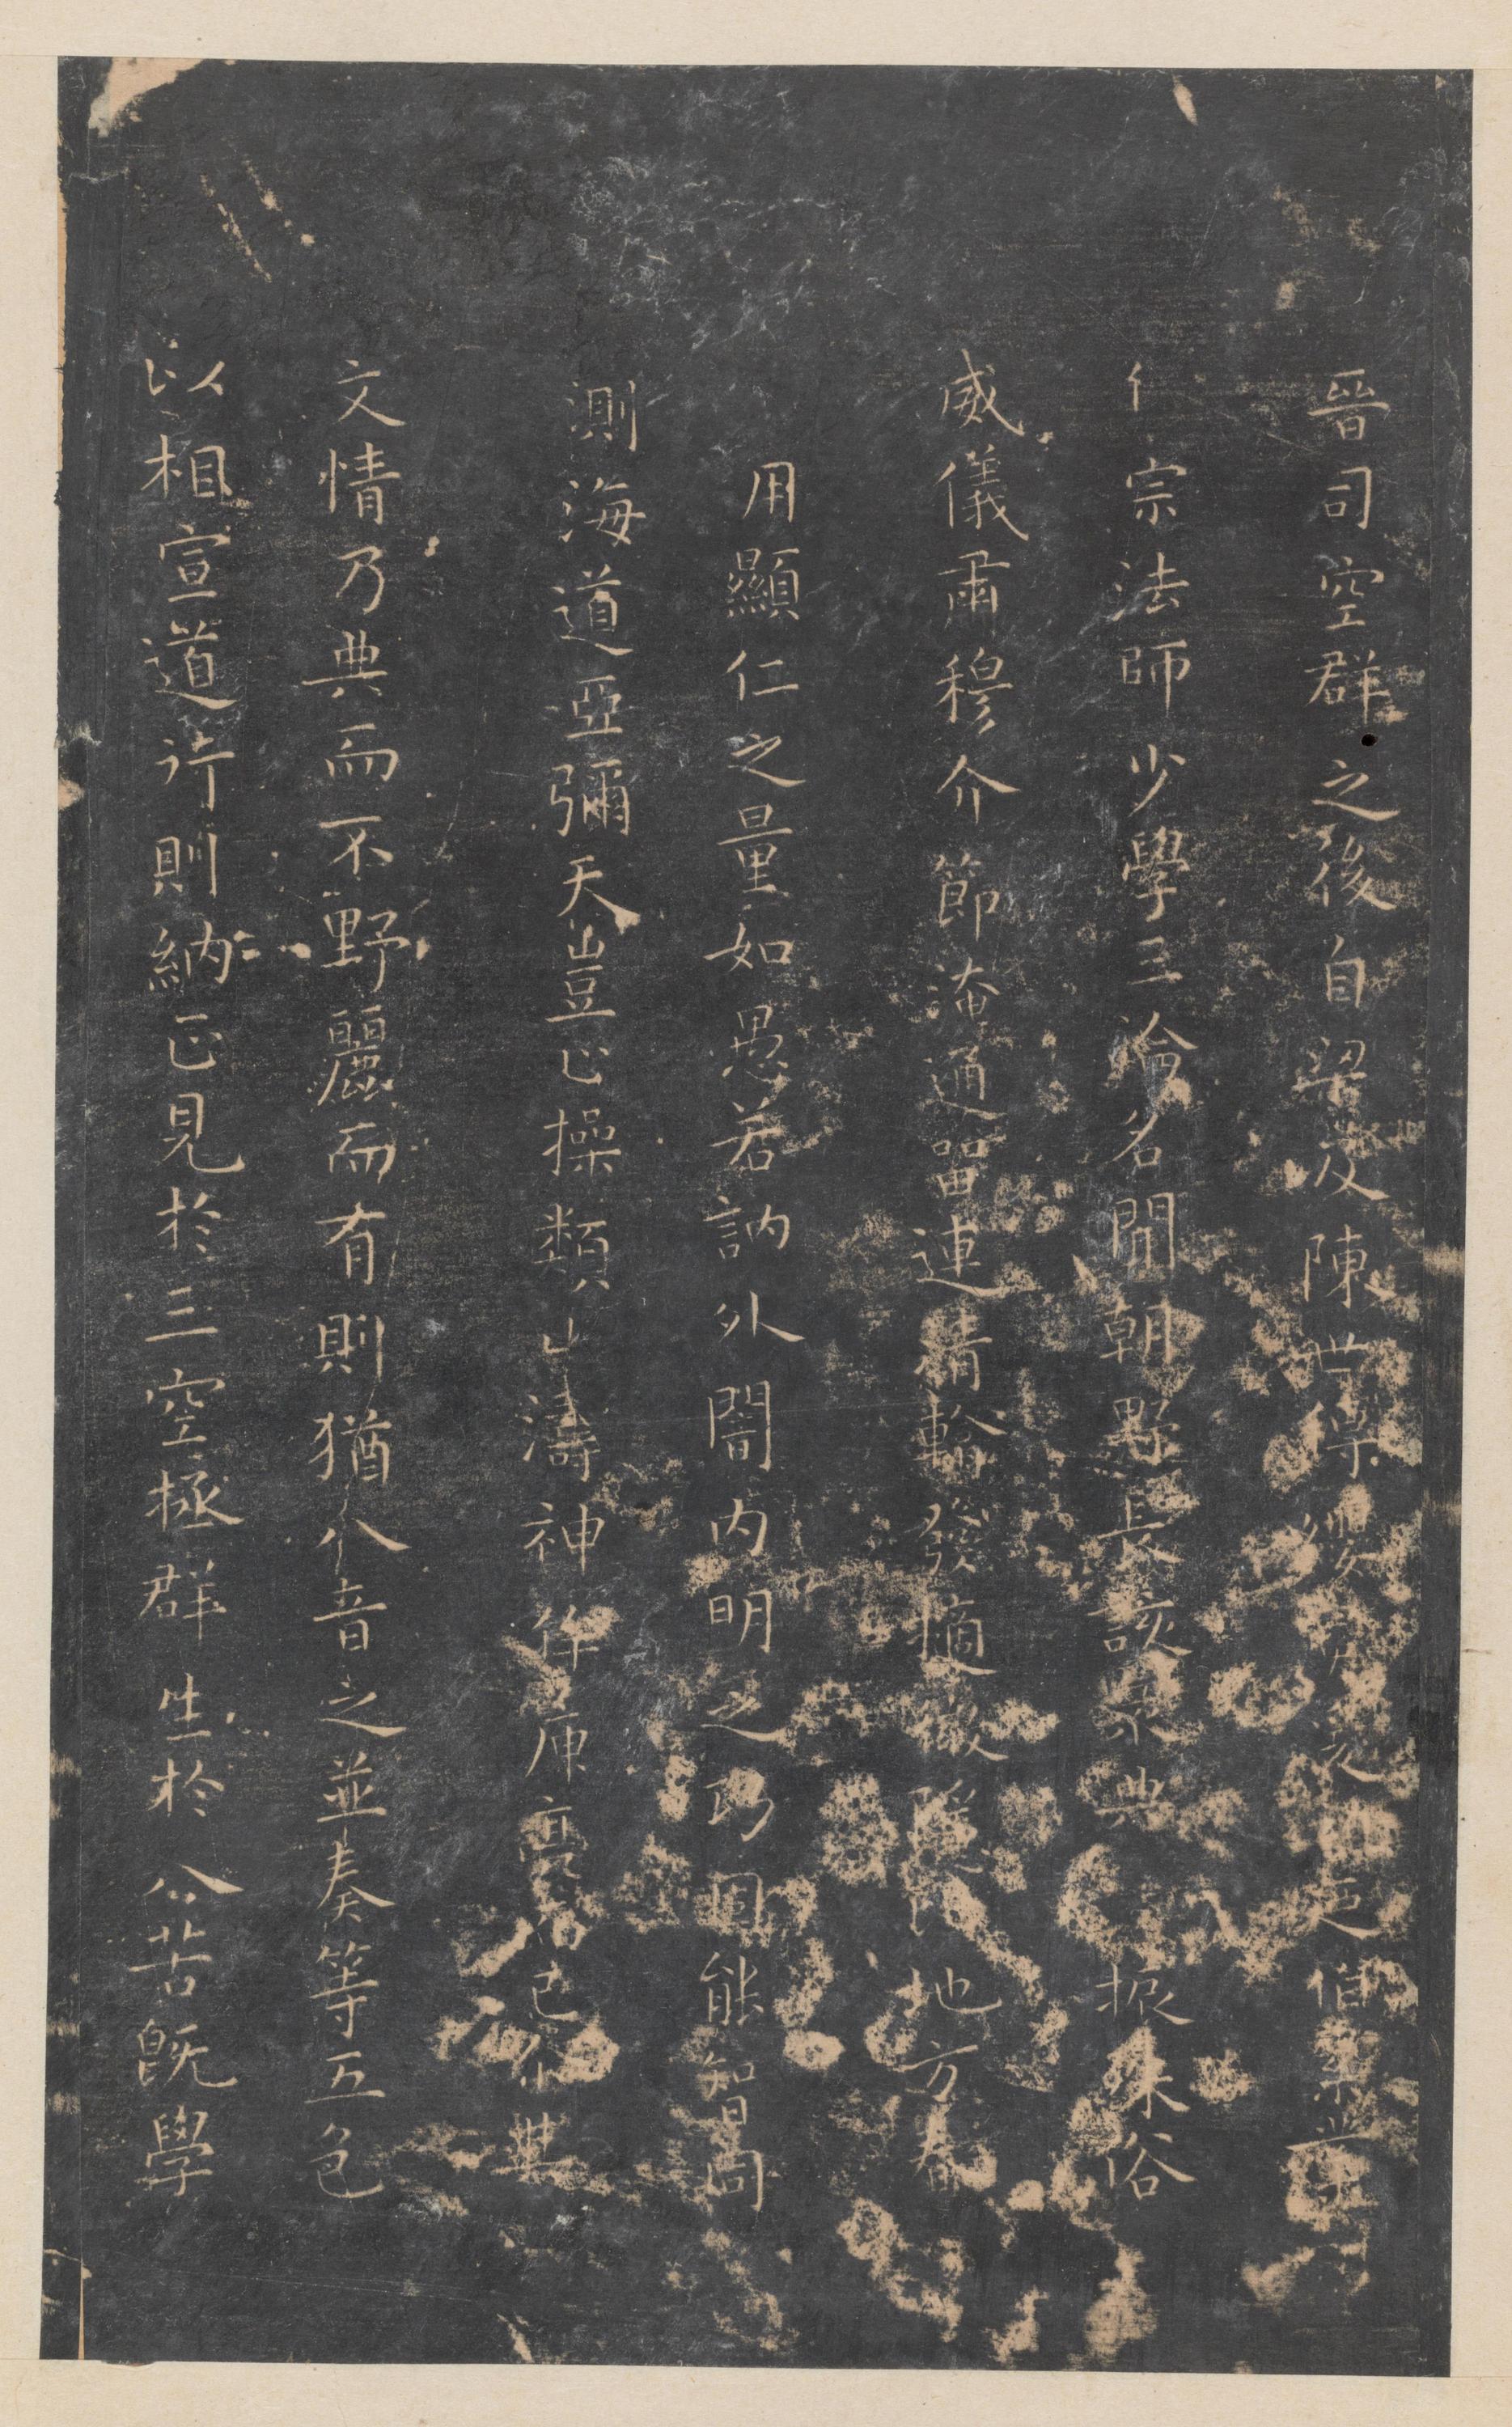 晉司空群之後自梁及陳世傳纓冕
宗法師少學三論名聞朝野長該眾典振殊俗
威儀肅穆介節淹通留連精輪發摘微隱地方
用顯仁之量如愚若訥外闇內明之巧固能智周
測海道亞彌天豈止操類山濤神侔庾亮而已
文情乃典而不野麗而有則猶八音之並奏等五色
以相宣道行則納正見於三空拯群生於八苦既學